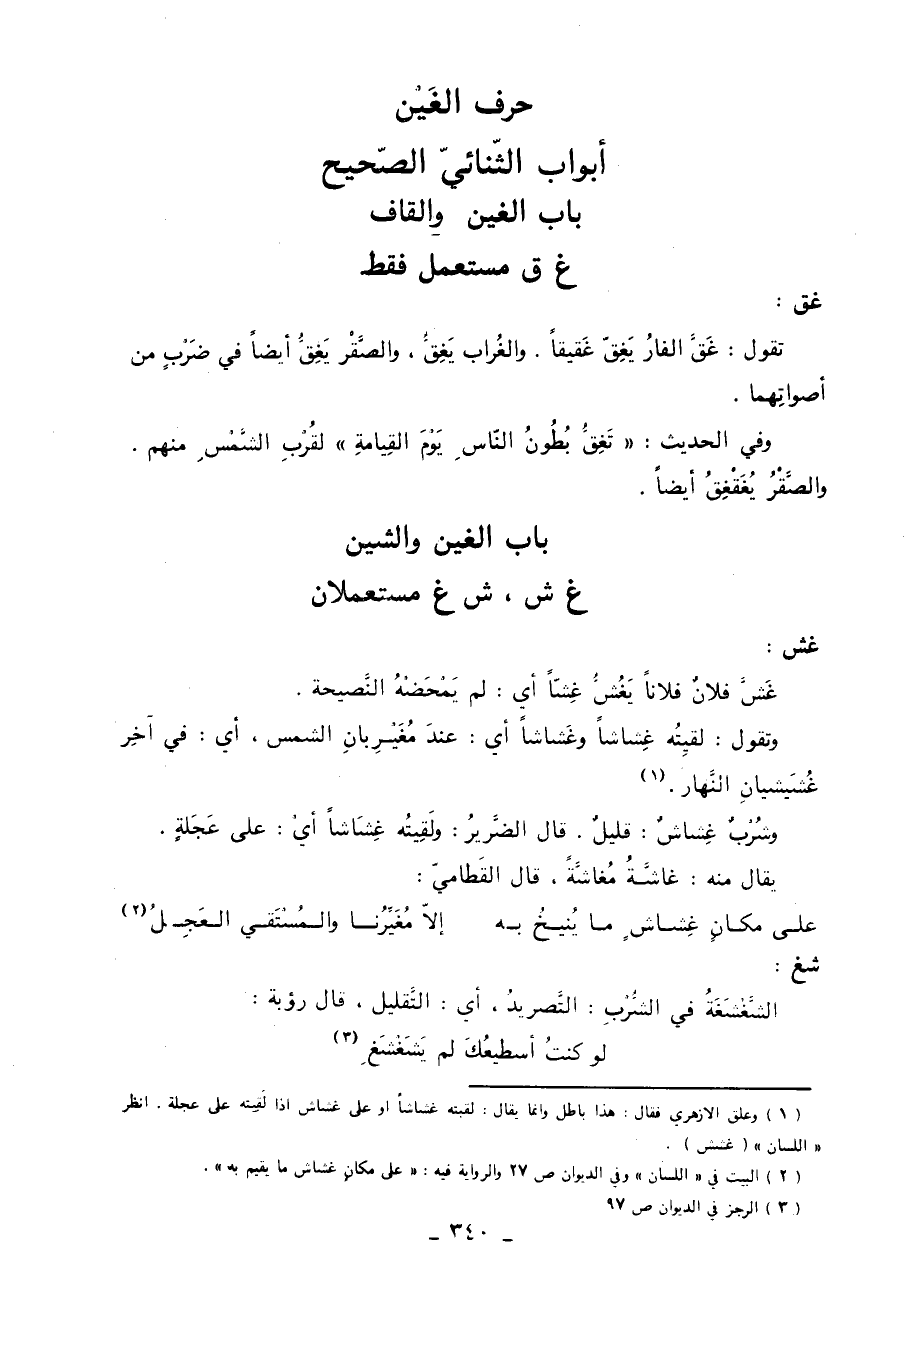 حرف الغَيْن
أبواب الثّنائيّ الصّحيح
باب الغين والقاف
غ ق مستعمل فقط
غق :
تقول : غَقَّ الفارُ يَغِقّ غَقيقاً . والغُراب يَغِقُّ ، والصَّقْر يَغِقُّ أيضاً في ضَرْبٍ من
أصواتِهما .
وفي الحديث : « تَغِقُّ بُطُونُ النّاسِ يَوْمَ القِيامةِ » لقُرْبِ الشَّمْسِ منهم .
والصَّقْرُ يُغَقْغِقُ أيضاً .
باب الغين والشين
غ ش ، ش غ مستعملان
غش :
غَشَّ فلانٌ فلاناً يَغُشُّ غِشّاً أي : لم يَمْحَضْهُ النَّصيحة .
وتقول : لقيتُه غِشاشاً وغَشاشاً أي : عندَ مُغَيْرِبانِ الشمس ، أي : في آخِر
غُشَيْشيانِ النَّهار .(١)
وشُرْبٌ غِشاشٌ : قليلٌ . قال الضَّريرُ : ولَقِيتُه غِشَاشاً أيْ : على عَجَلةٍ .
يقال منه : غاشَّةُ مُغاشَّةً ، قال القَطاميّ :
على مكانٍ غِشاشٍ ما يُنيخُ به إلاّ مُغَيِّرُنا والمُسْتَقي العَجِلُ(٢)
شغ :
الشَّغْشَغَةُ في الشُّرْبِ : التَّصريدُ ، أي : التَّقليل ، قال رؤبة :
لو كنتُ أسطيعُكَ لم يَشَغْشَغِ (٣)
( ١ ) وعلق الازهري فقال : هذا باطل وانما يقال : لقيته غشاشاً او على غشاش اذا لَقيته على عجلة . انظر
« اللسان » ( غشش ) .
( ٢ ) البيت في « اللسان » وفي الديوان ص ٢٧ والرواية فيه : « على مكانٍ غشاش ما يقيم به » .
( ٣ ) الرجز في الديوان ص ٩٧
ـ ٣٤٠ ـ